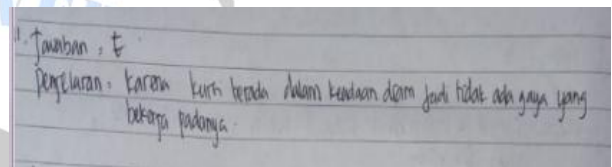 1. Jawaban : t
Penjelasan : karena kursi berada dalam keadaan diam jadi tidak ada gaya yang
bekerja padanya.